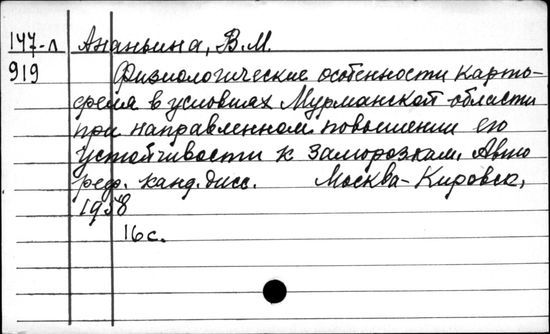 147-л Ананьина, В.М.
919 Физиологические особенности карто-
феля в условиях Мурманской области
при направленном повышении его
устойчивости к заморозкам. Авто
реф. канд. дисс. Москва-Кировск,
1958
16 с.